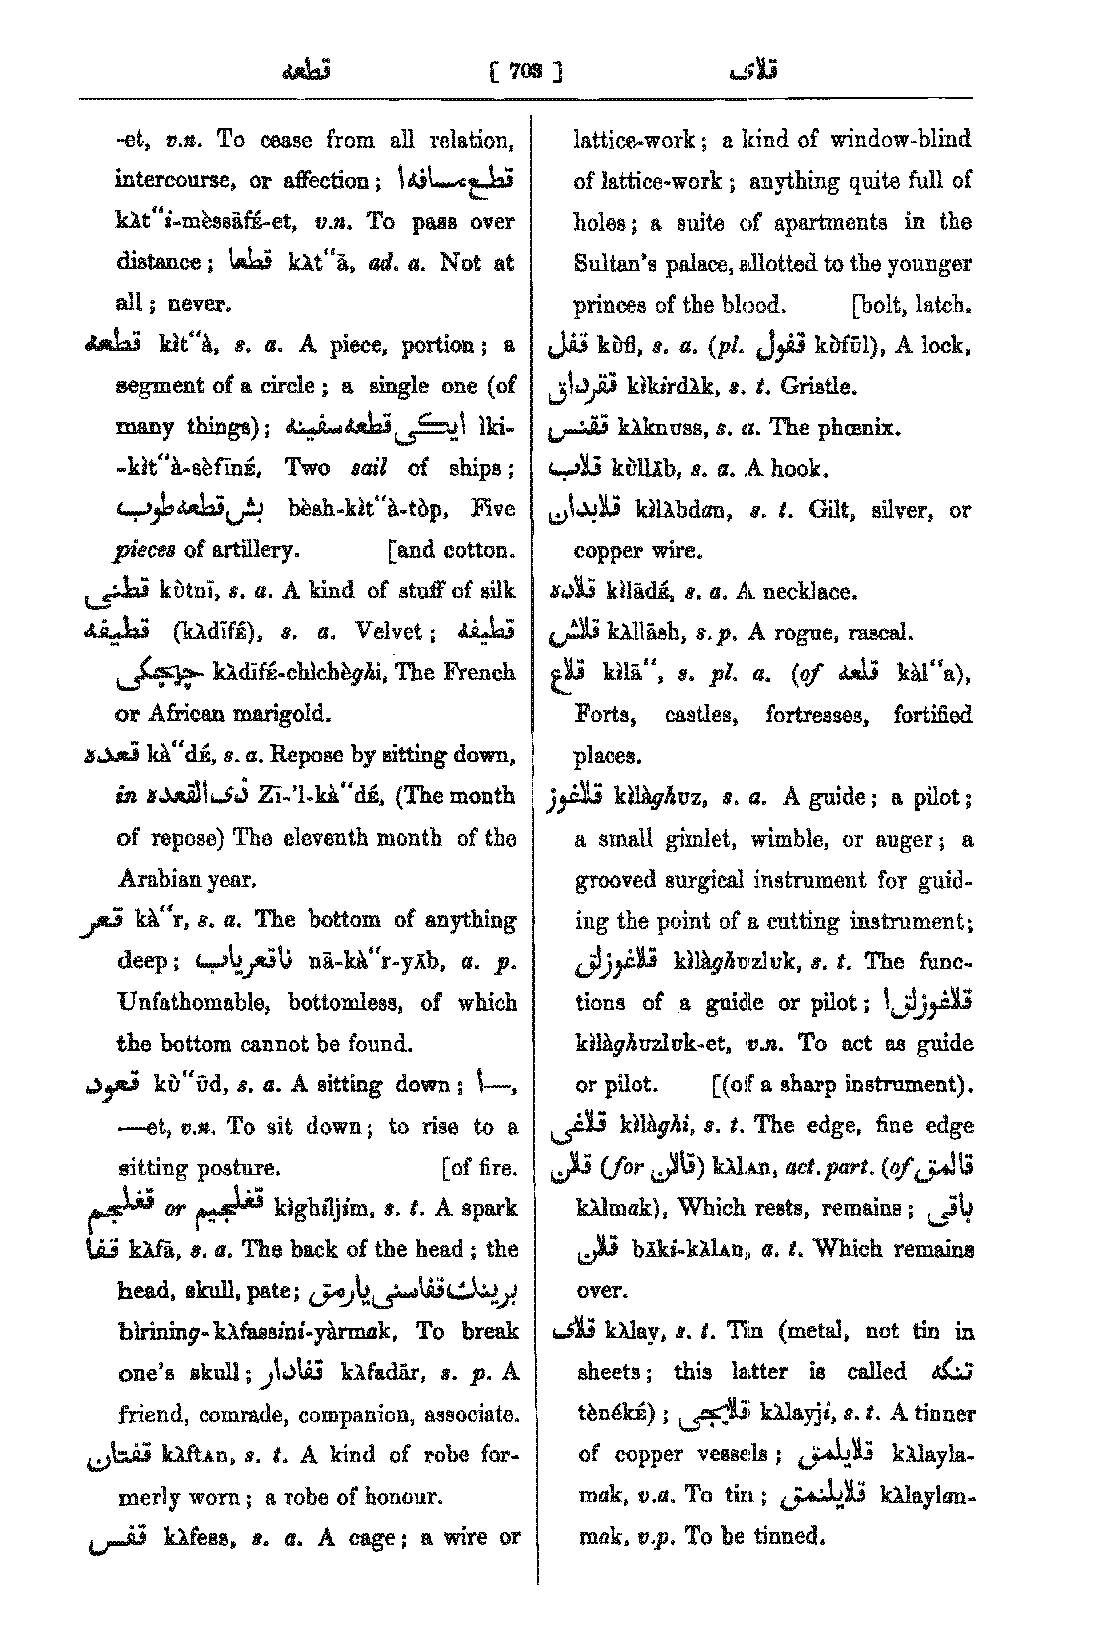 قطعه [ 703 ] قلای
-et, v.n. To cease from all relation,
intercourse, or affection; قطع مسافه ا
kλt“i-mèssāfé-et, v.n. To pass over
distance; قطعا kλt“ā, ad. a. Not at
all; never.
قطعه kìt“à, s. a. A piece, portion; a
segment of a circle; a single one (of
many things); ایکی قطعه سفینه Iki-
-kìt“à-sèfīné, Two sail of ships;
بش قطعه طوپ bèsh-kìt“à-tòp, Five
pieces of artillery. [and cotton.
قطنی kùtnī, s. a. A kind of stuff of silk
قطیفه (kλdīfé), s. a. Velvet; قطیفه
چیچکی kλdīfé-chìchèghi, The French
or African marigold.
قعده kà“dé, s. a. Repose by sitting down,
in ذی القعده Zī-’l-kà“dé, (The month
of repose) The eleventh month of the
Arabian year.
قعر kà“r, s. a. The bottom of anything
deep; ناقعریاب nā-kà“r-yāb, a. p.
Unfathomable, bottomless, of which
the bottom cannot be found.
قعود kù“ūd, s. a. A sitting down; ا—,
—et, v.n. To sit down; to rise to a
sitting posture. [of fire.
قغلجم or قغلجیم kìghíljím, s. t. A spark
قفا kλfā, s. a. The back of the head; the
head, skull, pate; برینك قفاسنی یارمق
bìrining-kλfassini-yàrmak, To break
one’s skull; قفادار kλfadār, s. p. A
friend, comrade, companion, associate.
قفتان kλftᴀn, s. t. A kind of robe for-
merly worn; a robe of honour.
قفس kλfess, s. a. A cage; a wire or
lattice-work; a kind of window-blind
of lattice-work; anything quite full of
holes; a suite of apartments in the
Sultan’s palace, allotted to the younger
princes of the blood. [bolt, latch.
قفل kùfl, s. a. (pl. قفول kùfūl), A lock,
ققرداق kìkirdλk, s. t. Gristle.
ققنس kλknuss, s. a. The phœnix.
قلاب kùllāb, s. a. A hook.
قلابدان kìlλbdan, s. t. Gilt, silver, or
copper wire.
قلاده kìlādé, s. a. A necklace.
قلاش kλllāsh, s. p. A rogue, rascal.
قلاع kìlā“, s. pl. a. (of قلعه kàl“a),
Forts, castles, fortresses, fortified
places.
قلاغوز kìlàghuz, s. a. A guide; a pilot;
a small gimlet, wimble, or auger; a
grooved surgical instrument for guid-
ing the point of a cutting instrument;
قلاغوزلق kìlàghuzluk, s. t. The func-
tions of a guide or pilot; قلاغوزلق ا
kìlàghuzluk-et, v.n. To act as guide
or pilot. [(of a sharp instrument).
قلاغی kìlàghi, s. t. The edge, fine edge
قلان (for قالان) kλlᴀn, act. part. (of قالمق
kλlmak), Which rests, remains; باقی
قلان bāki-kλlᴀn, a. t. Which remains
over.
قلای kλlay, s. t. Tin (metal, not tin in
sheets; this latter is called تنکه
tènéké); قلایجی kλlayji, s. t. A tinner
of copper vessels; قلایلمق kλlayla-
mak, v.a. To tin; قلایلنمق kλlaylan-
mak, v.p. To be tinned.